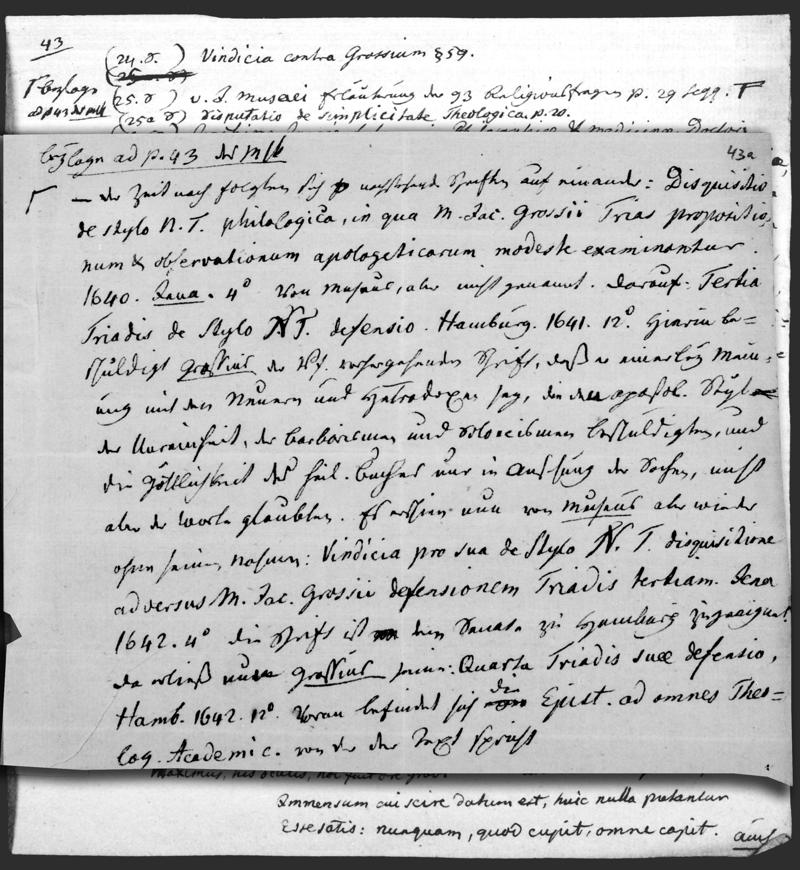 43
(24. σ. ) Vindicia contra Grossium § 59.
Beylage
ad p. 43 des Mss
(25. σ ) v. J. Musaei Erläuterung der 93 Religionsfragen p. 29 segq. Γ
(25a σ) disputatio de simplicitate Theologica. p. 20.
Beylage ad p. 43 des Mss
43a
Γ — der Zeit nach folgten sich nachstehende Schriften auf einander: Disquisitio
de stylo N. T. philologica, in qua M. Jac. Grossii Trias propositio-
num & observationum apologeticarum modeste examinantur.
1640. Jena. 4° von Musäus, aber nicht genannt. Darauf: Tertia
Triadis de Stylo N T. defensio. Hamburg. 1641. 12°. Hierin be=
schuldigt Grossius den Vf. vorhergehender Schrift, daß er einerley Mein=
ung mit den Neuern und Heterodoxen sey, die den apostol. Styl
der Unreinheit, der barbarismen und Soloecismen beschuldigten, und
die Göttlichkeit des heil. Buches nur in Ansehung der Sachen, nicht
aber der Worte glaubten. Es erschien nun von Musäus aber wieder
ohne seinen Nahmen: Vindicia pro sua de Stylo N. T. disquisitione
adversus M. Jac. Grossii defensionem Triadis tertiam. Jena
1642. 4° die Schrift ist dem Senate zu Hamburg zugeeignet.
da erließ nun Grossius seine: Quarta Triadis suæ defensio,
Hamb. 1642. 12°. Voran befindet sich die Epist. ad omnes Theo=
log. Academic. von der der Text spricht
Immensum cui scire datum est, huic nulla putantur
Esse satis: nunquam, quod cupit, omne capit.